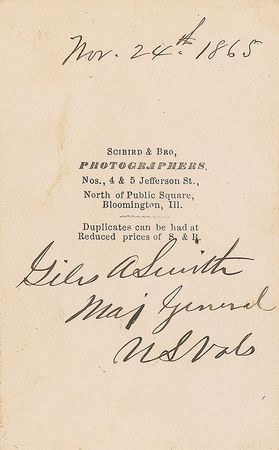 Nov. 24th 1865
SCIBIRD & BRO,
PHOTOGRAPHERS.
Nos., 4 & 5 Jefferson St.,
North of Public Square,
Bloomington, Ill.
Duplicates can be had at
Reduced prices of S. & B.
Giles A Smith
Maj General
U S Vols